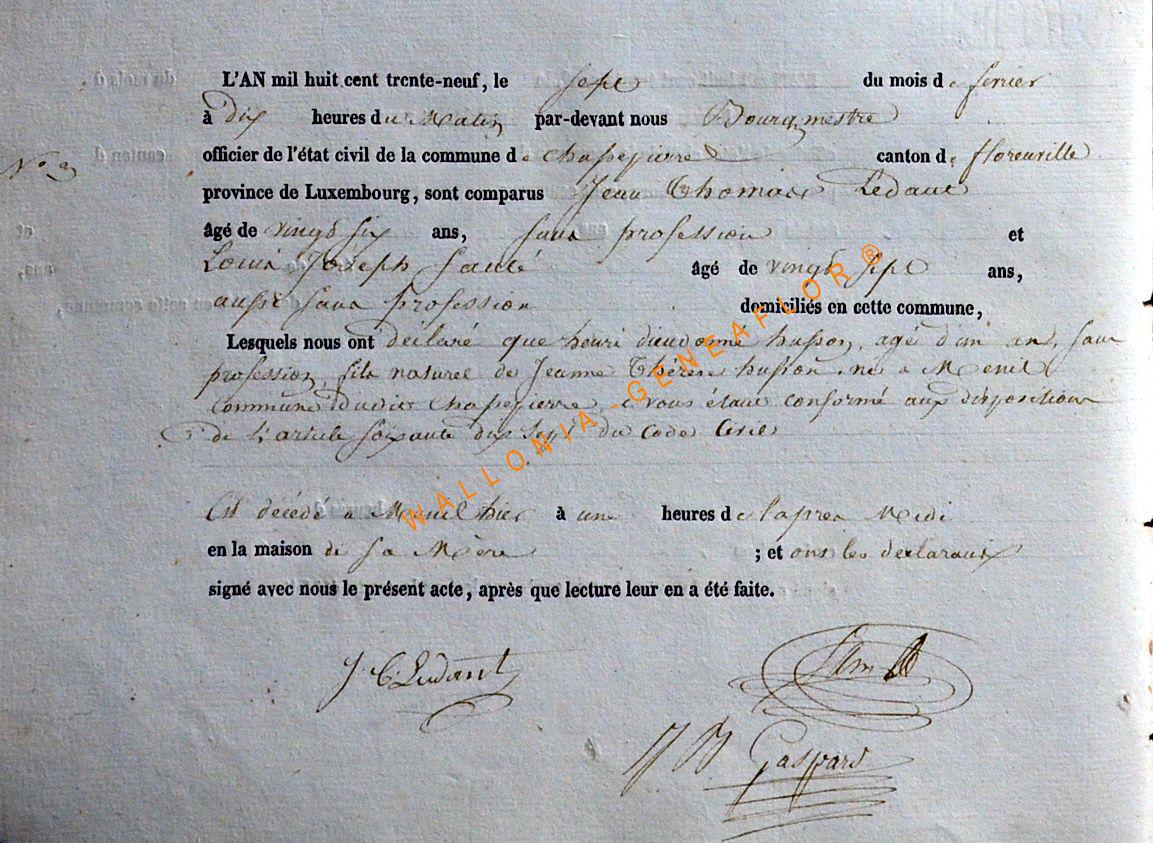 L'AN mil huit cent trente-neuf, le sept du mois de fevrier
à dix heures du Matin par-devant nous Bourgmestre
N° 3 officier de l'état civil de la commune de chassepierre canton de florenville
province de Luxembourg, sont comparus Jean Thomas Ledant
âgé de vingt six ans, sans profession et
Louis Joseph âgé de vingt sept ans,
aussi sans profession domiciliés en cette commune,
Lesquels nous ont déclaré que henri dieudonné husson, agé d'un an, sans
profession, fils naturel de Jeanne Thérèse husson, né a Menil
commune dudit chassepierre, nous étant conformé aux dispositions
de l'article soixante dix sept du Code Civil
Est décédé a Menil hier à une heures de l'apres Midi
en la maison de sa Mère ; et ont les declarants
signé avec nous le présent acte, après que lecture leur en a été faite.
J T Ledant
J B Gaspard
WALLONIA-GENEAFLOR®